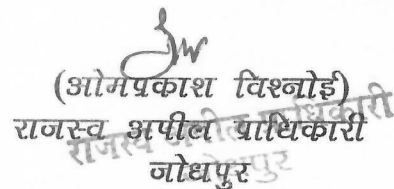 (ओमप्रकाश विश्नोई)
राजस्व अपील प्राधिकारी
जोधपुर
राजस्व अपील प्राधिकारी
जोधपुर